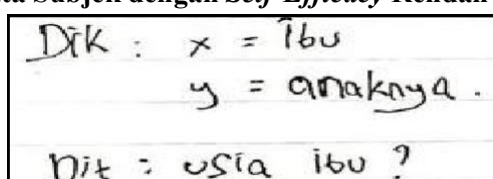 ta Subjek dengan Self-Efficacy Rendah
Dik : x = Ibu
y = anaknya .
Dit : usia ibu ?